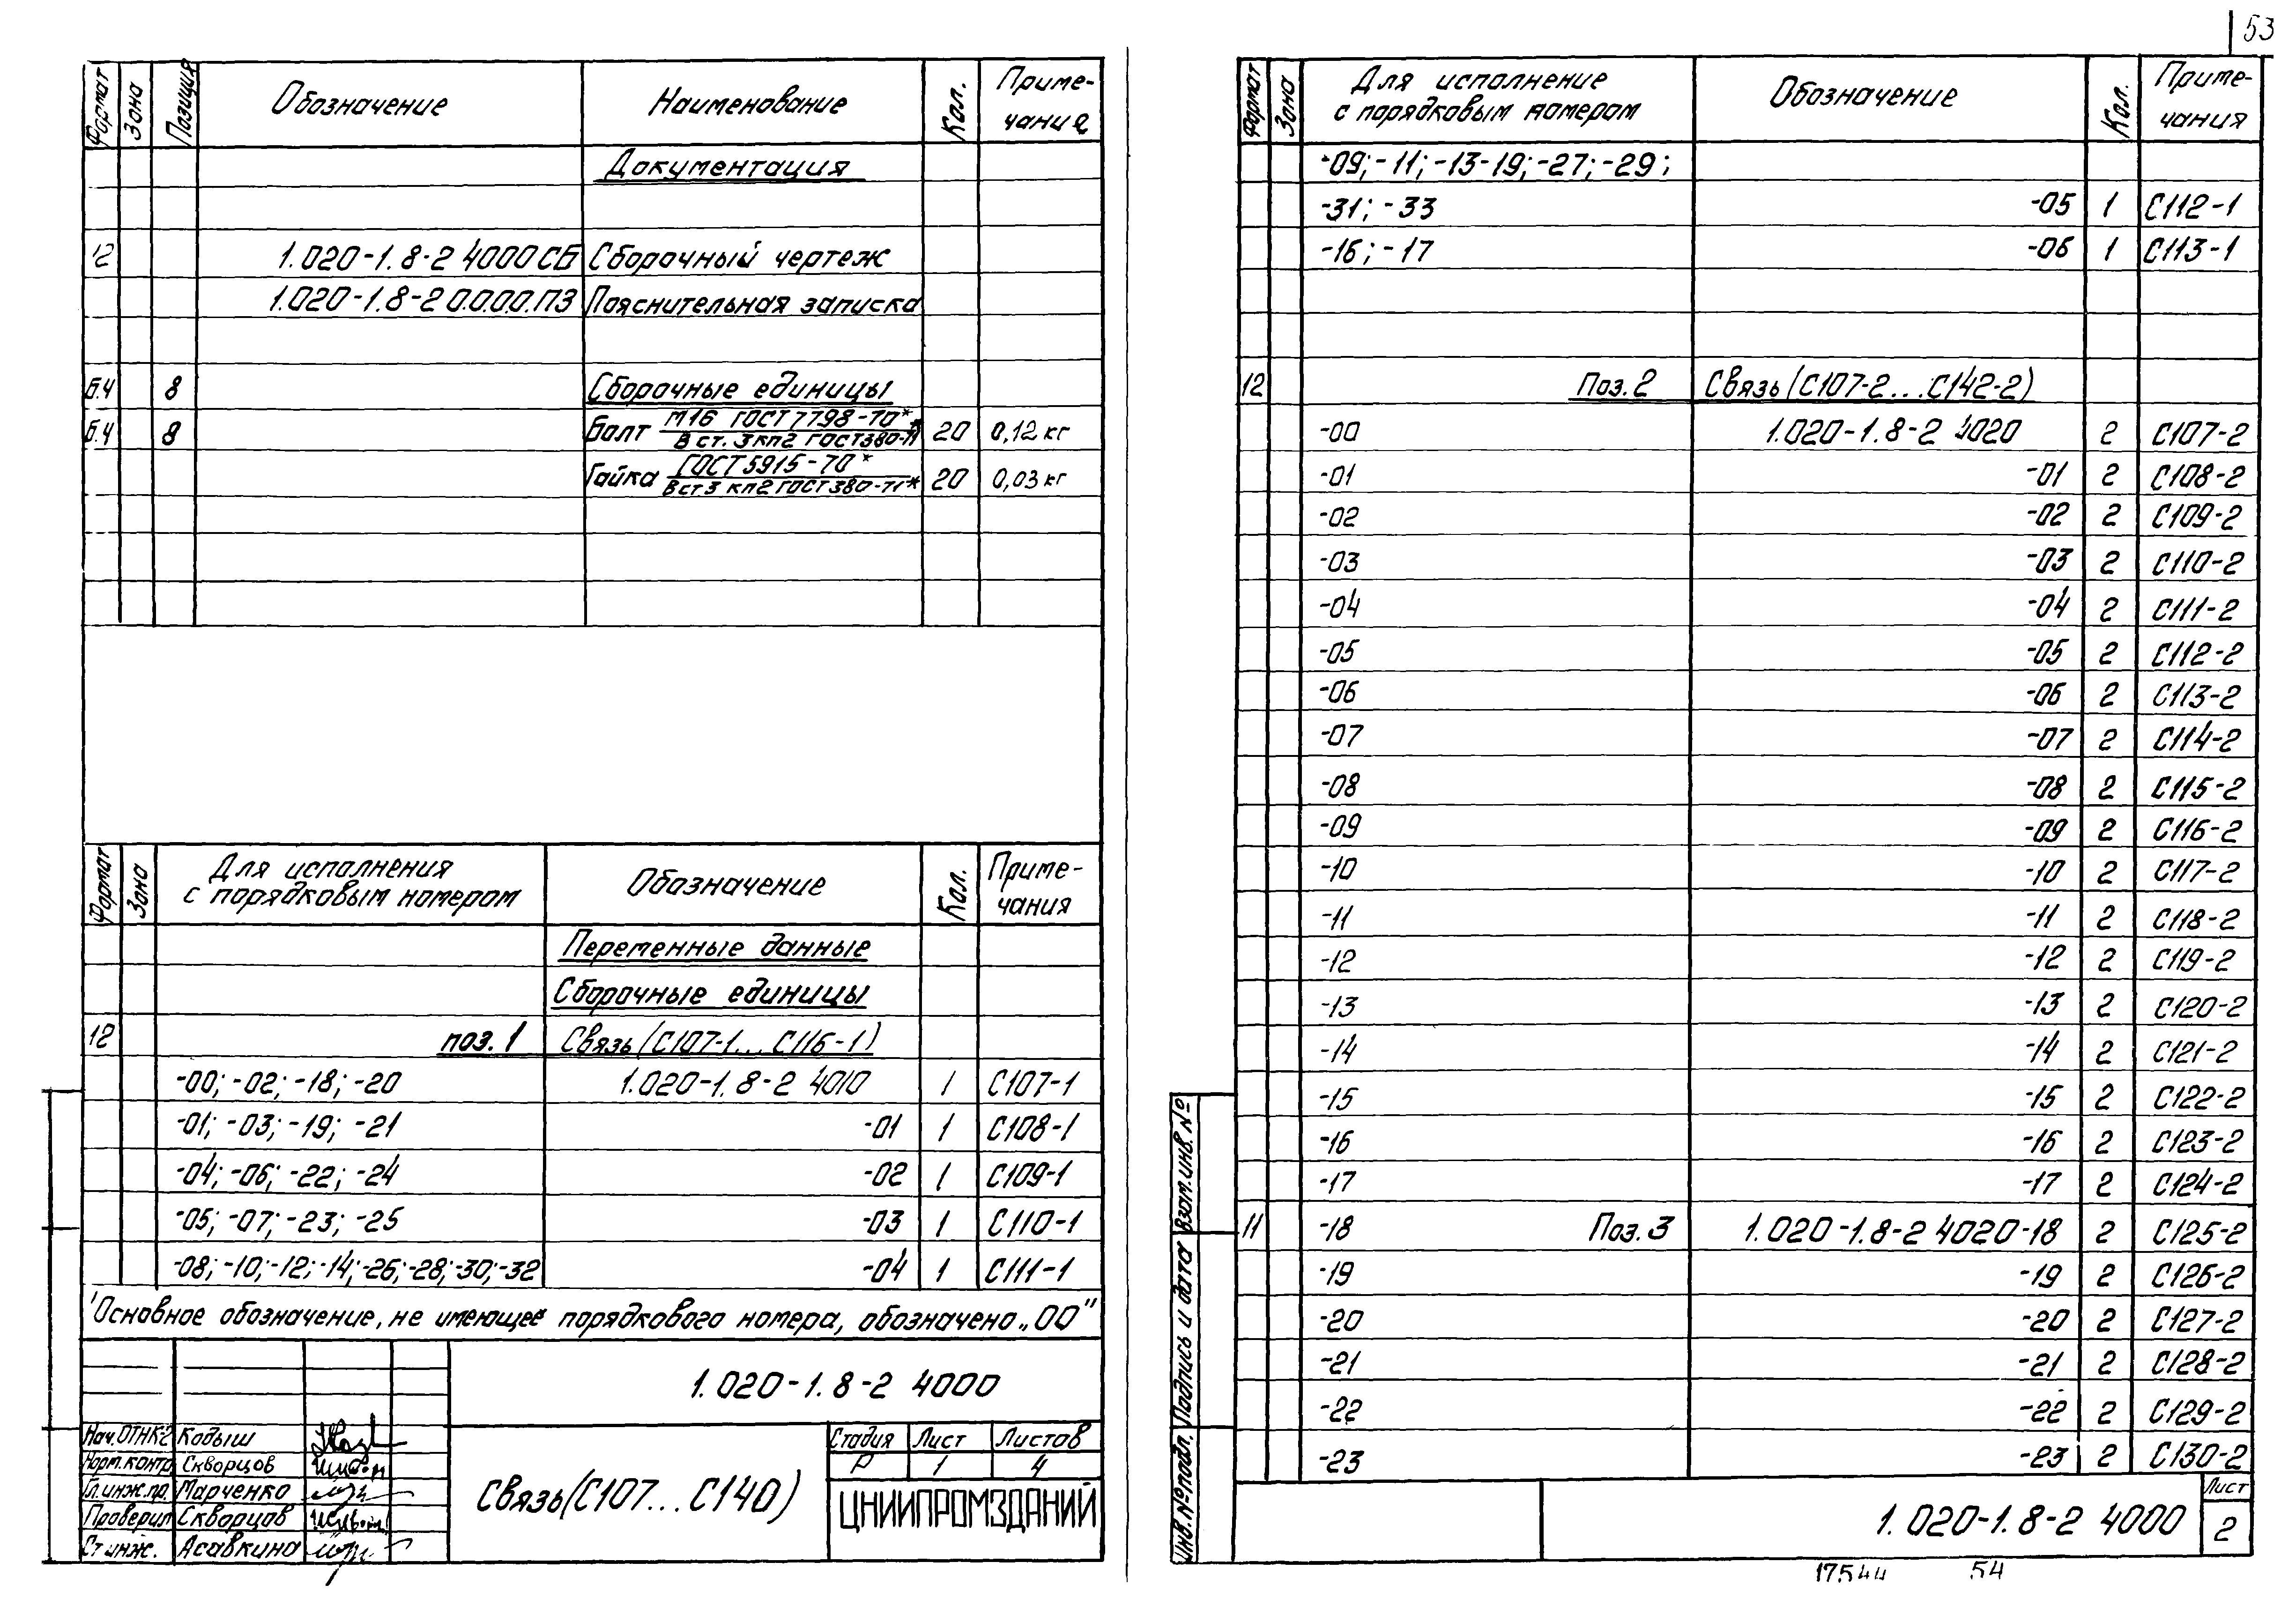 53
Формат Зона Позиция Обозначение Наименование Кол. Приме-чания
Документация
12 1.020-1.8-2 4000СБ Сборочный чертеж
1.020-1.8-2 0.0.0.0.ПЗ Пояснительная записка
Б.4 8 Сборочные единицы
Б.4 8 Болт М16 ГОСТ 7798-70* / В ст. 3 кп2 ГОСТ 380-71* 20 0,12 кг
Гайка ГОСТ 5915-70* / В ст 3 кп2 ГОСТ 380-71* 20 0,03 кг
Формат Зона Для исполнения с порядковым номером Обозначение Кол. Приме-чания
Переменные данные
Сборочные единицы
12 поз. 1 Связь (С107-1...С116-1)
-00; -02; -18; -20 1.020-1.8-2 4010 1 С107-1
-01; -03; -19; -21 -01 1 С108-1
-04; -06; -22; -24 -02 1 С109-1
-05; -07; -23; -25 -03 1 С110-1
-08; -10; -12; -14; -26; -28; -30; -32 -04 1 С111-1
Основное обозначение, не имеющее порядкового номера, обозначено „00"
1.020-1.8-2 4000
Нач. ОТНК-2 Кодыш
Норм. контр. Скворцов
Гл. инж. пр. Марченко
Проверил Скворцов
Ст. инж. Асавкина
Связь (С107...С140)
Стадия Лист Листов
Р 1 4
ЦНИИПРОМЗДАНИЙ
Формат Зона Для исполнение с порядковым номером Обозначение Кол. Приме-чания
-09; -11; -13-19; -27; -29;
-31; -33 -05 1 С112-1
-16; -17 -06 1 С113-1
12 Поз. 2 Связь (С107-2...С142-2)
-00 1.020-1.8-2 4020 2 С107-2
-01 -01 2 С108-2
-02 -02 2 С109-2
-03 -03 2 С110-2
-04 -04 2 С111-2
-05 -05 2 С112-2
-06 -06 2 С113-2
-07 -07 2 С114-2
-08 -08 2 С115-2
-09 -09 2 С116-2
-10 -10 2 С117-2
-11 -11 2 С118-2
-12 -12 2 С119-2
-13 -13 2 С120-2
-14 -14 2 С121-2
-15 -15 2 С122-2
-16 -16 2 С123-2
-17 -17 2 С124-2
11 -18 Поз. 3 1.020-1.8-2 4020-18 2 С125-2
-19 -19 2 С126-2
-20 -20 2 С127-2
-21 -21 2 С128-2
-22 -22 2 С129-2
-23 -23 2 С130-2
Инв. № подл. Подпись и дата Взам. инв. №
1.020-1.8-2 4000
Лист
2
17544 54